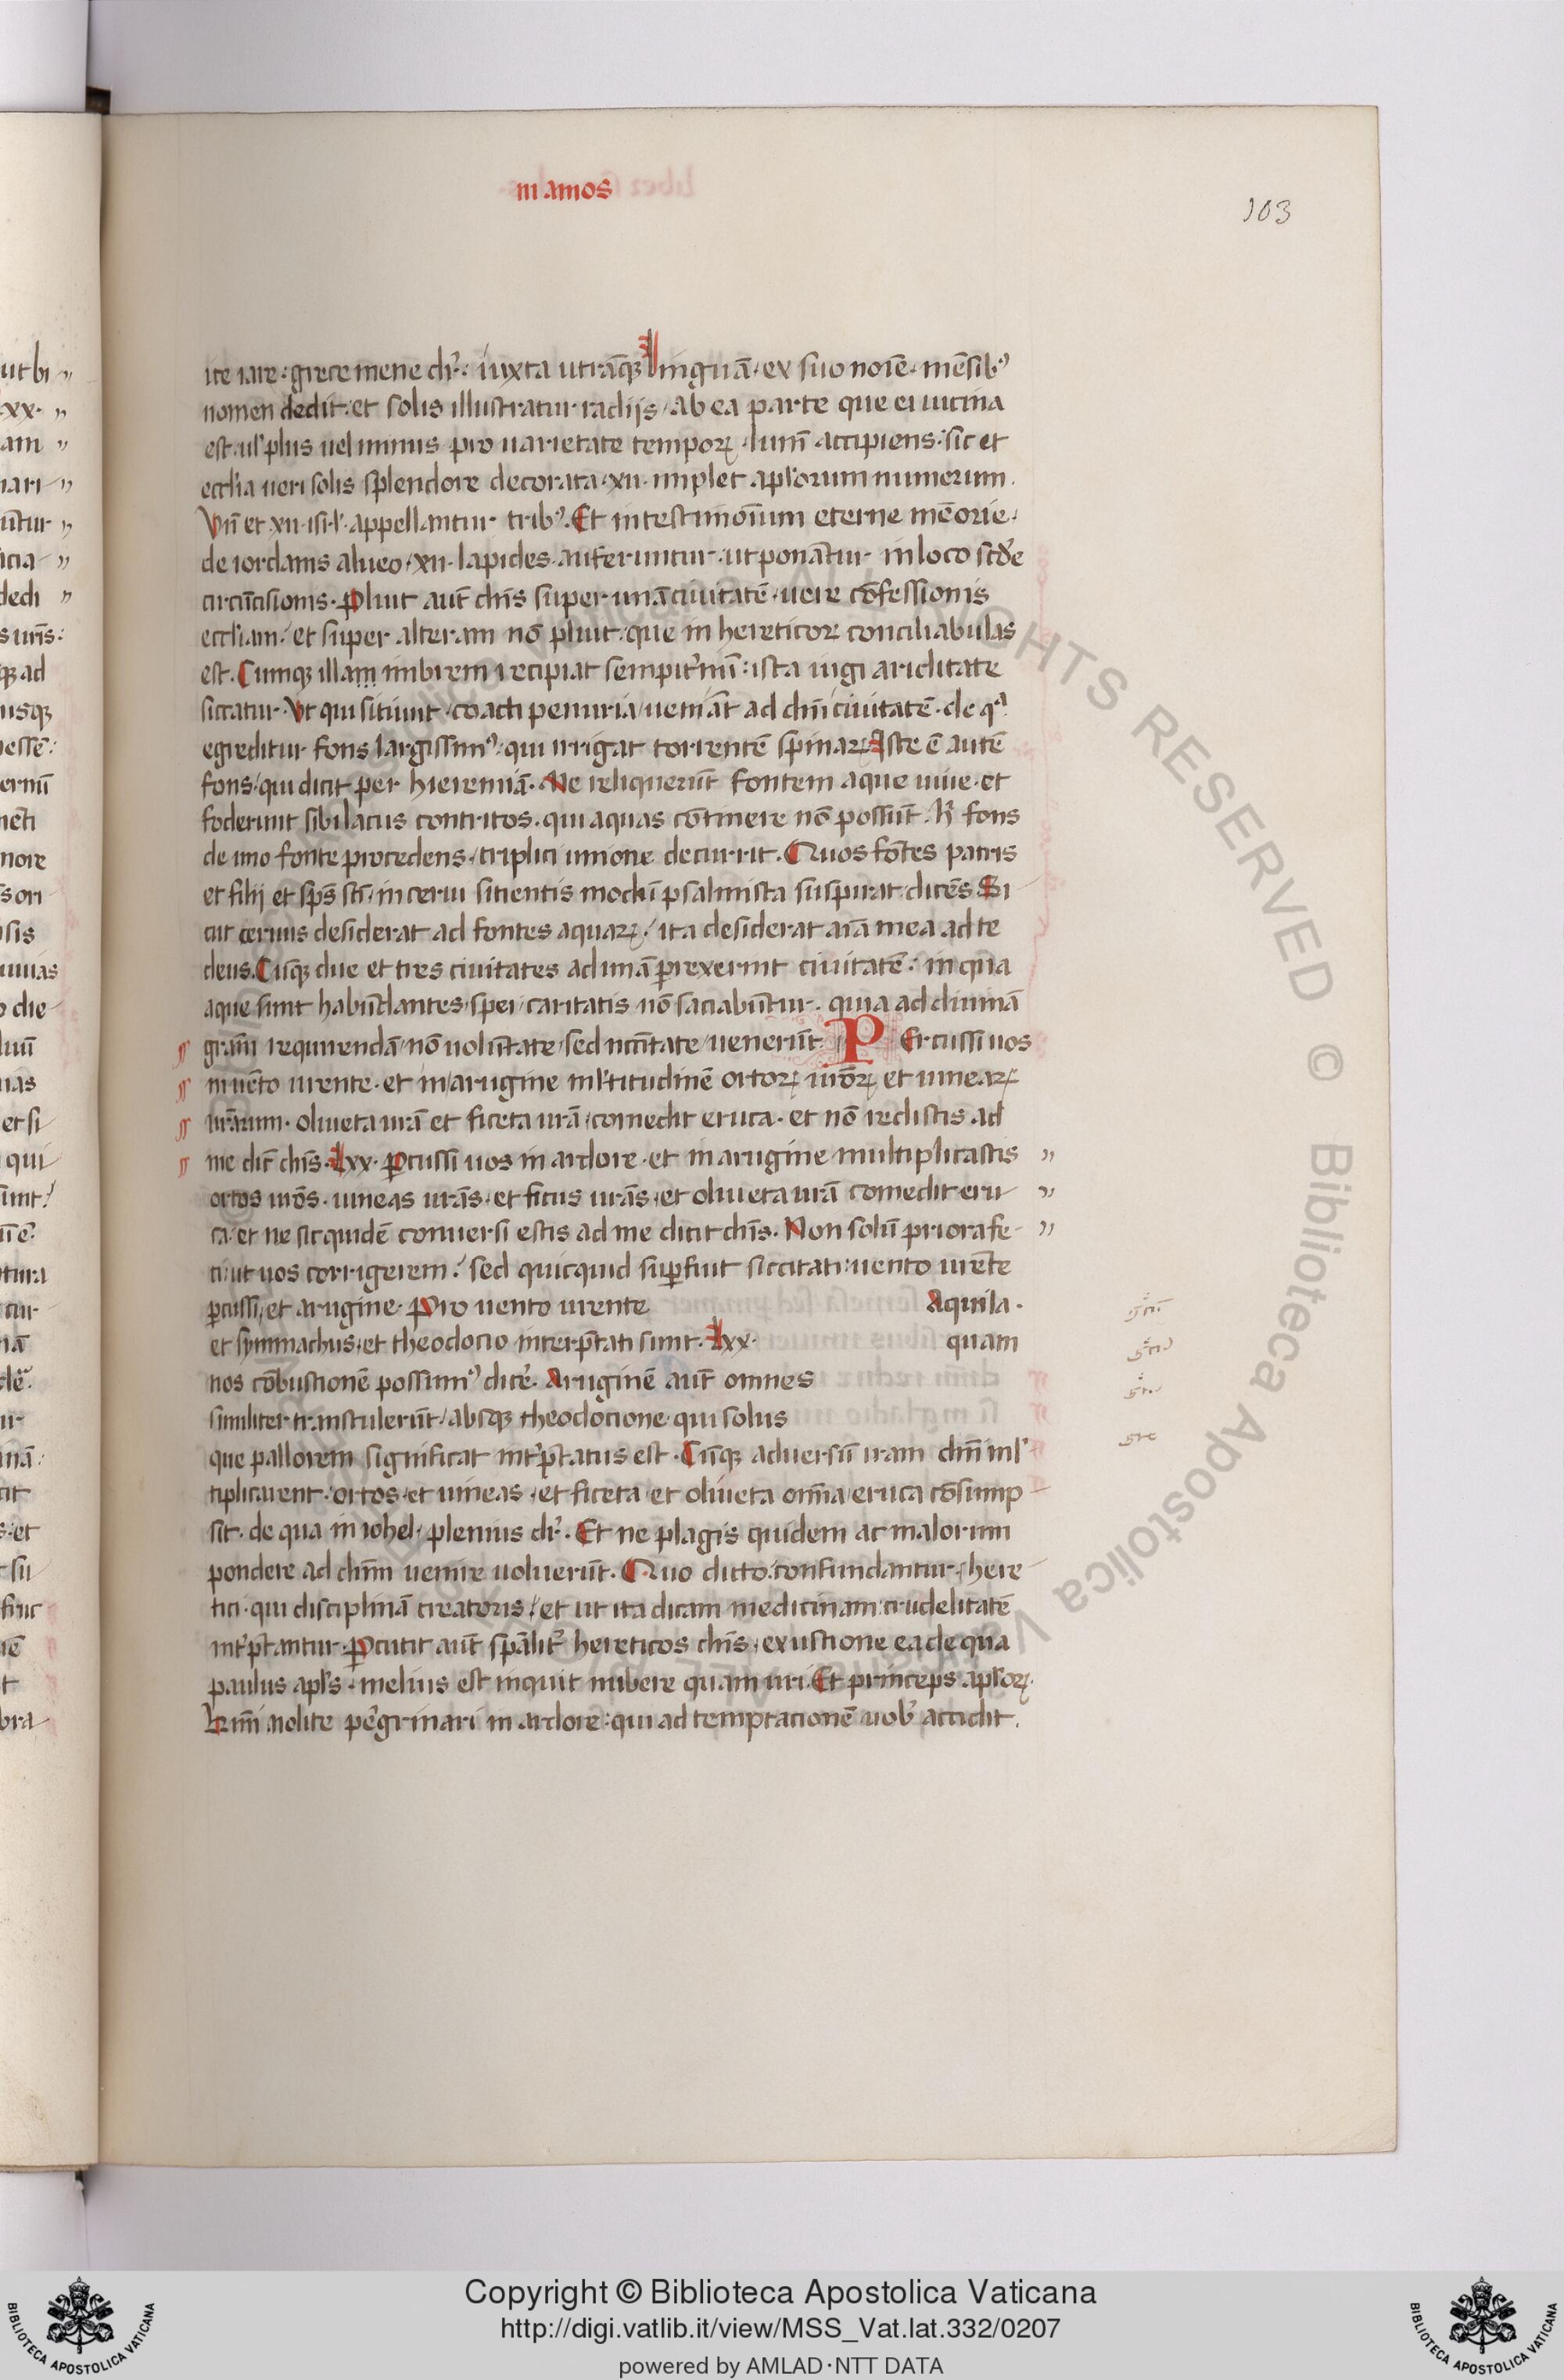 in amos
103
ice iare: grece mene dr̃. iuxta utrãqꝫ linguã. ex suo noĩe. mẽsibꝰ
nomen dedit. et solis illustratur radijs / ab ea parte que ei uicina
est. ul' plus uel minus pro uarietate temporꝝ. lum̃ accipiens. sic et
eccl'ia ueri solis splendore decorata. xii. implet apl'orum numerum.
Vñ et xii. isr̃l'. appellantur tribꝰ. Et in testimoĩum eterne mẽorie.
de iordanis alueo. xii. lapides. auferuntur. ut ponãtur in loco scd̃e
circũcisionis. ꝑluit aut̃ dñs super unã ciuitatẽ. uere cõfessionis
eccl'iam. et super alteram nõ pluit. que in hereticoꝝ conciliabulis
est. Cumqꝫ illam imbrem recipiat sempit̃nũ: ista iugi ariditate
siccatur. Vt qui sitiunt / coacti penuria / ueniãt ad dñi ciuitatẽ. de qᵃ
egreditur fons largissimꝰ. qui irrigat torrentẽ spinaꝝ. Iste ẽ autẽ
fons / qui dicit per hieremiã. Me reliquerũt fontem aque uiue. et
foderunt sibi lacus contritos. qui aquas cõtinere nõ possũt. h̃ fons
de uno fonte procedens / triplici unione decurrit. Quos fõtes patris
et filij et sp̃s sc̃i / in cerui sitientis modũ psalmista suspirat dicẽs. Si
cut ceruus desiderat ad fontes aquaꝝ. / ita desiderat aĩa mea ad te
deus. Cũqꝫ due et tres ciuitates ad unã ꝑrexerint ciuitatẽ. in qua
aque sunt habũdantes / spei / caritatis nõ saciabũtur. quia ad diuinã
gram̃ requirendã / nõ uolũtate / sed nccẽtate / uenerũt. PErcussi uos
in uẽto urente. et in arugine ml'titudinẽ ortoꝝ ur̃oꝝ et uineaꝝ
ur̃arum. oliueta ur̃ã et ficeta ur̃ã / comedit eruca. et nõ redistis ad
me dic̃ dñs. Lxx. ꝑcussi uos in ardore. et in arugine multiplicastis
ortos ur̃õs. uineas ur̃ãs. et ficus ur̃ãs. et oliueta ur̃ã comedit eru
ca. et ne sic quidẽ conuersi estis ad me dicit dñs. Non solũ priora fe
ci ut uos corrigerem. / sed quicquid suꝑfuit siccitati uento urẽte
ꝑcussi / et arugine. Pro uento urente Aquila.
et symmachus. et theodocio interp̃tati sunt. Lxx. quam
nos cõbustionẽ possumꝰ dic̃e. Aruginẽ aut̃ omnes
similiter transtulerũt / absqꝫ theodocione qui solus
que pallorem significat int̃p̃tatus est. Cũqꝫ aduersũ iram dñi ml'
tiplicarent. ortos. et uineas. et ficeta et oliueta om̃ia / eruca cõsump
sit. de qua in iohel. plenius dr̃. Et ne plagis quidem ac malorum
pondere ad dñm uenire uoluerũt. Quo dicto. confundantur. here
tici. qui disciplinã creatoris / et ut ita dicam medicinam crudelitatẽ
int̃p̃tantur. ꝑcutit aut̃ sp̃alit̃ hereticos dñs. exustione ea de qua
paulus apl's. melius est inquit nubere quam uri. Et princeps apl'oꝝ.
kr̃mi nolite ꝑegrinari in ardore. qui ad temptationẽ uob̃ accidit.
Copyright © Biblioteca Apostolica Vaticana
http://digi.vatlib.it/view/MSS_Vat.lat.332/0207
powered by AMLAD·NTT DATA